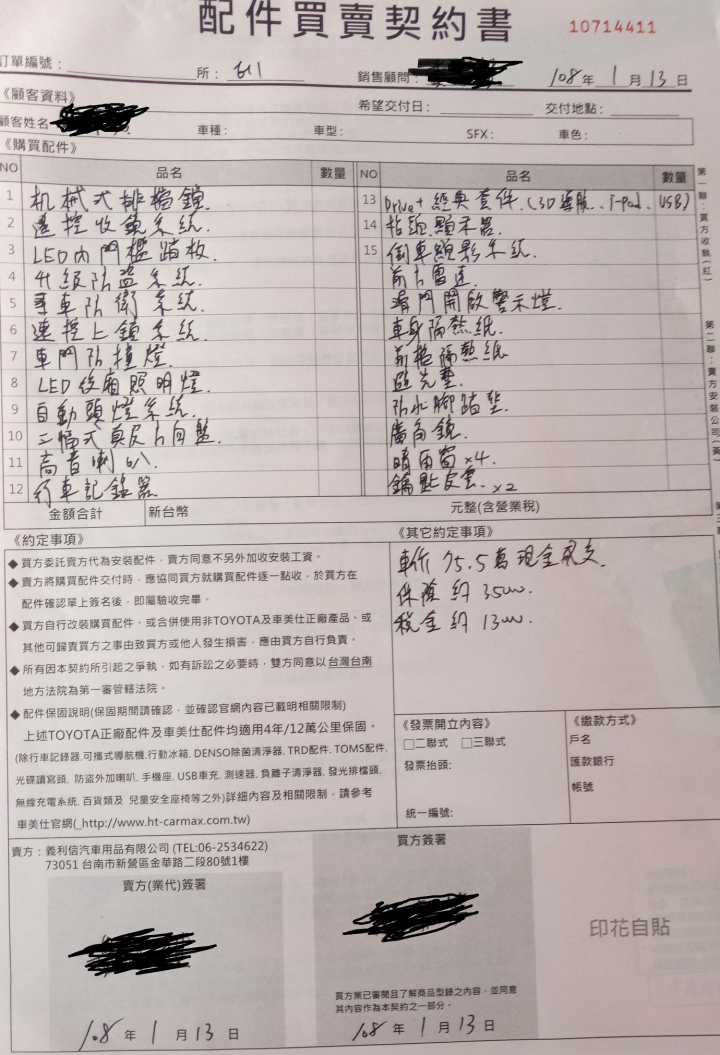 配件買賣契約書
10714411
訂單編號：
所： 611 銷售顧問： 108 年 1 月 13 日
《顧客資料》 希望交付日： 交付地點：
顧客姓名 車種： 車型： SFX： 車色：
《購買配件》
NO 品名 數量
1 机械式排檔鎖.
2 遙控收鏡系統.
3 LED內門檻踏板.
4 升級防盜系統.
5 尋車防衛系統.
6 速控上鎖系統.
7 車門防撞燈.
8 LED後廂照明燈.
9 自動頭燈系統.
10 三幅式真皮方向盤.
11 高音喇叭.
12 行車記錄器
NO 品名 數量
13 Drive+ 經典套件.(3D導航..i-pod. USB)
14 抬頭顯示器.
15 倒車顯影系統.
前方雷達
滑門開啟警示燈.
車身隔熱紙.
前檔隔熱紙
避光墊.
防水腳踏墊.
廣角鏡.
晴雨窗 x4.
鑰匙皮套. x2
金額合計 新台幣 元整(含營業稅)
第一聯：買方收執(紅)
第二聯：賣方安裝公司(黃)
《約定事項》
◆ 買方委託賣方代為安裝配件，賣方同意不另外加收安裝工資。
◆ 賣方將購買配件交付時，應協同買方就購買配件逐一點收，於買方在
配件確認單上簽名後，即屬驗收完畢。
◆ 買方自行改裝購買配件、或合併使用非TOYOTA及車美仕正廠產品、或
其他可歸責買方之事由致買方或他人發生損害，應由買方自行負責。
◆ 所有因本契約所引起之爭執，如有訴訟之必要時，雙方同意以台灣台南
地方法院為第一審管轄法院。
◆ 配件保固說明(保固期間請確認，並確認官網內容已載明相關限制)
上述TOYOTA正廠配件及車美仕配件均適用4年/12萬公里保固。
(除行車記錄器,可攜式導航機,行動冰箱, DENSO除菌清淨器, TRD配件, TOMS配件,
光碟讀寫頭, 防盜外加喇叭, 手機座, USB車充, 測速器, 負離子清淨器, 發光排檔頭,
無線充電系統, 百貨類及 兒童安全座椅等之外)詳細內容及相關限制，請參考
車美仕官網( http://www.ht-carmax.com.tw)
《其它約定事項》
車價 75.5萬現金成交.
保險 約 35000.
稅金約 13000.
《發票開立內容》
□二聯式 □三聯式
發票抬頭：
統一編號:
《繳款方式》
戶名
匯款銀行
帳號
賣方：義利信汽車用品有限公司 (TEL:06-2534622)
73051 台南市新營區金華路二段80號1樓
賣方(業代)簽署
108 年 1 月 13 日
買方簽署
買方業已審閱且了解商品型錄之內容，並同意
其內容作為本契約之一部分。
108 年 1 月 13 日
印花自貼